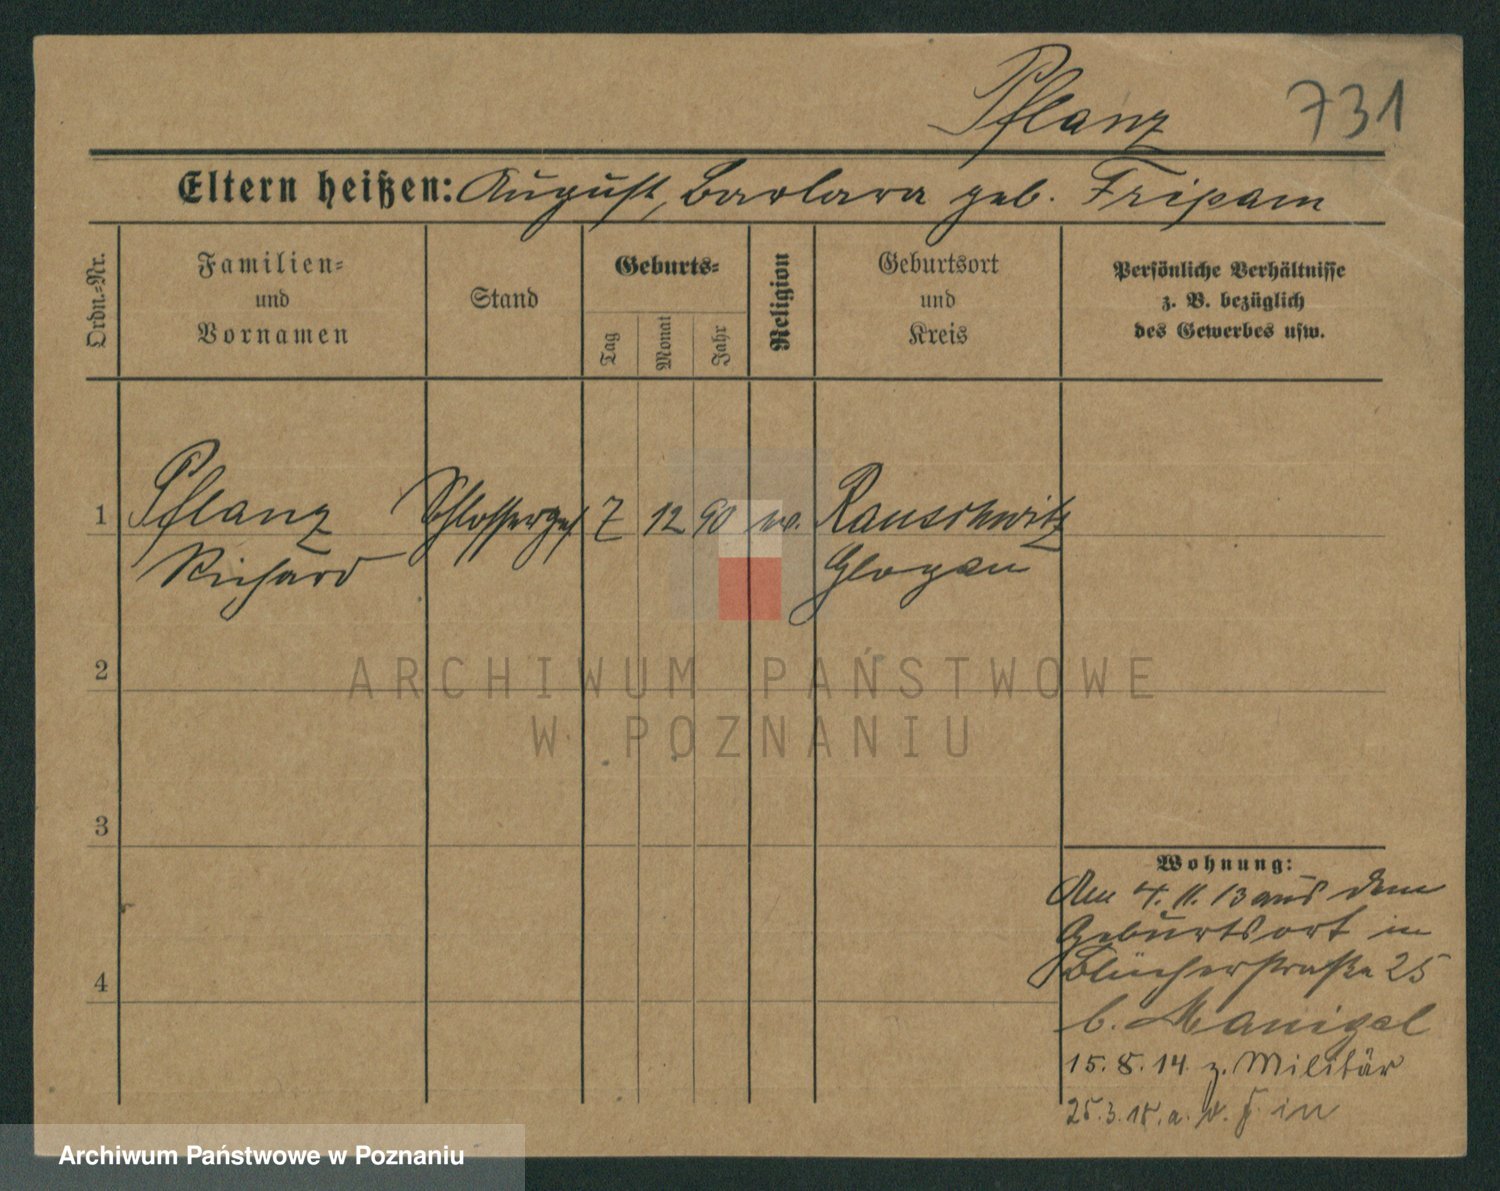 Pflanz 731
Eltern heißen: August, Barbara geb. Fripam
Ordn.-Nr.
Familien-
und
Vornamen
Stand
Geburts-
Tag
Monat
Jahr
Religion
Geburtsort
und
Kreis
Persönliche Verhältnisse
z. B. bezüglich
des Gewerbes usw.
1 Pflanz Schlosserges. 7 12 90 ev. Rauschwitz
Richard Glogau
2
ARCHIWUM PAŃSTWOWE
W POZNANIU
3
Wohnung:
Am 4. 11. 13 aus dem
Geburtsort in
4
Blücherstraße 25
b. Manigel
15. 8. 14. z. Militär
25. 3. 18. a. in
Archiwum Państwowe w Poznaniu